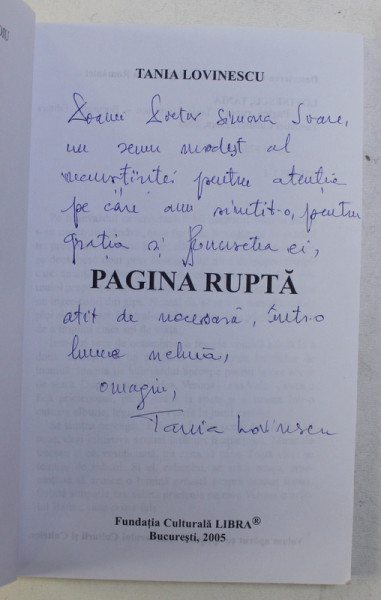 TANIA LOVINESCU
Doamnei Doctor Simona Soare,
un semn modest al
recunoștinței pentru atenția
pe care am simțit-o, pentru
grația și frumusețea ei,
PAGINA RUPTĂ
atât de necesară, într-o
lume nebună,
omagiu,
Tania Lovinescu
Fundația Culturală LIBRA®
București, 2005